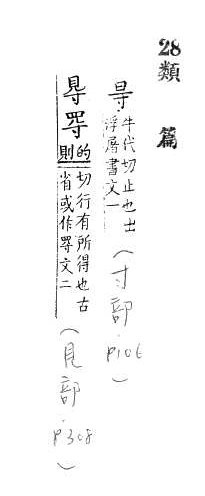 28類篇
㝵牛代切止也出
浮屠書文一
(寸部 p106)
的切行有所得也古
則省或作文二
(見部 p308)